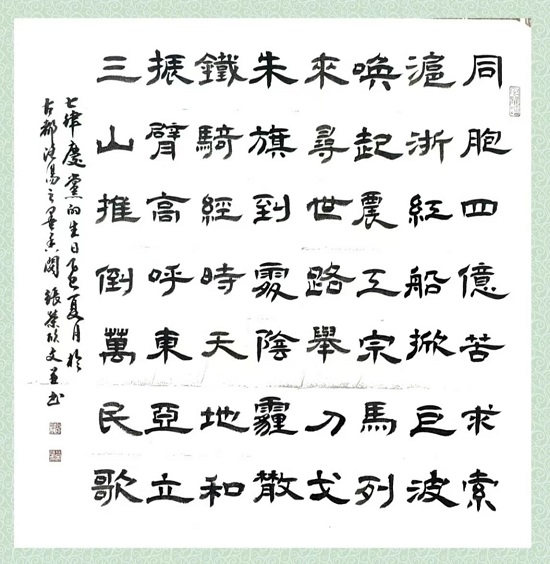 同胞四億苦求索
滬浙紅船掀巨波
喚起農工宗馬列
來尋世路舉刀戈
朱旗到處陰霾散
鐵騎經時天地和
振臂高呼東亞立
三山推倒萬民歌
七律慶黨的生日乙巳夏月於
古都洛陽之墨香閣張榮欣文并书